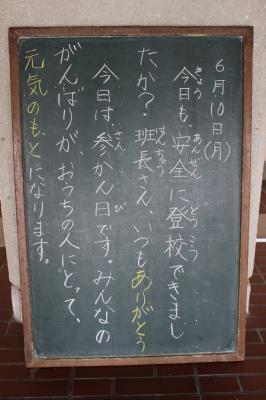 6月10日(月)
今日も、安全に登校できまし
たか？班長さん、いつもありがとう
今日は、参かん日です。みんなの
がんばりが、おうちの人にとって、
元気のもとになります。